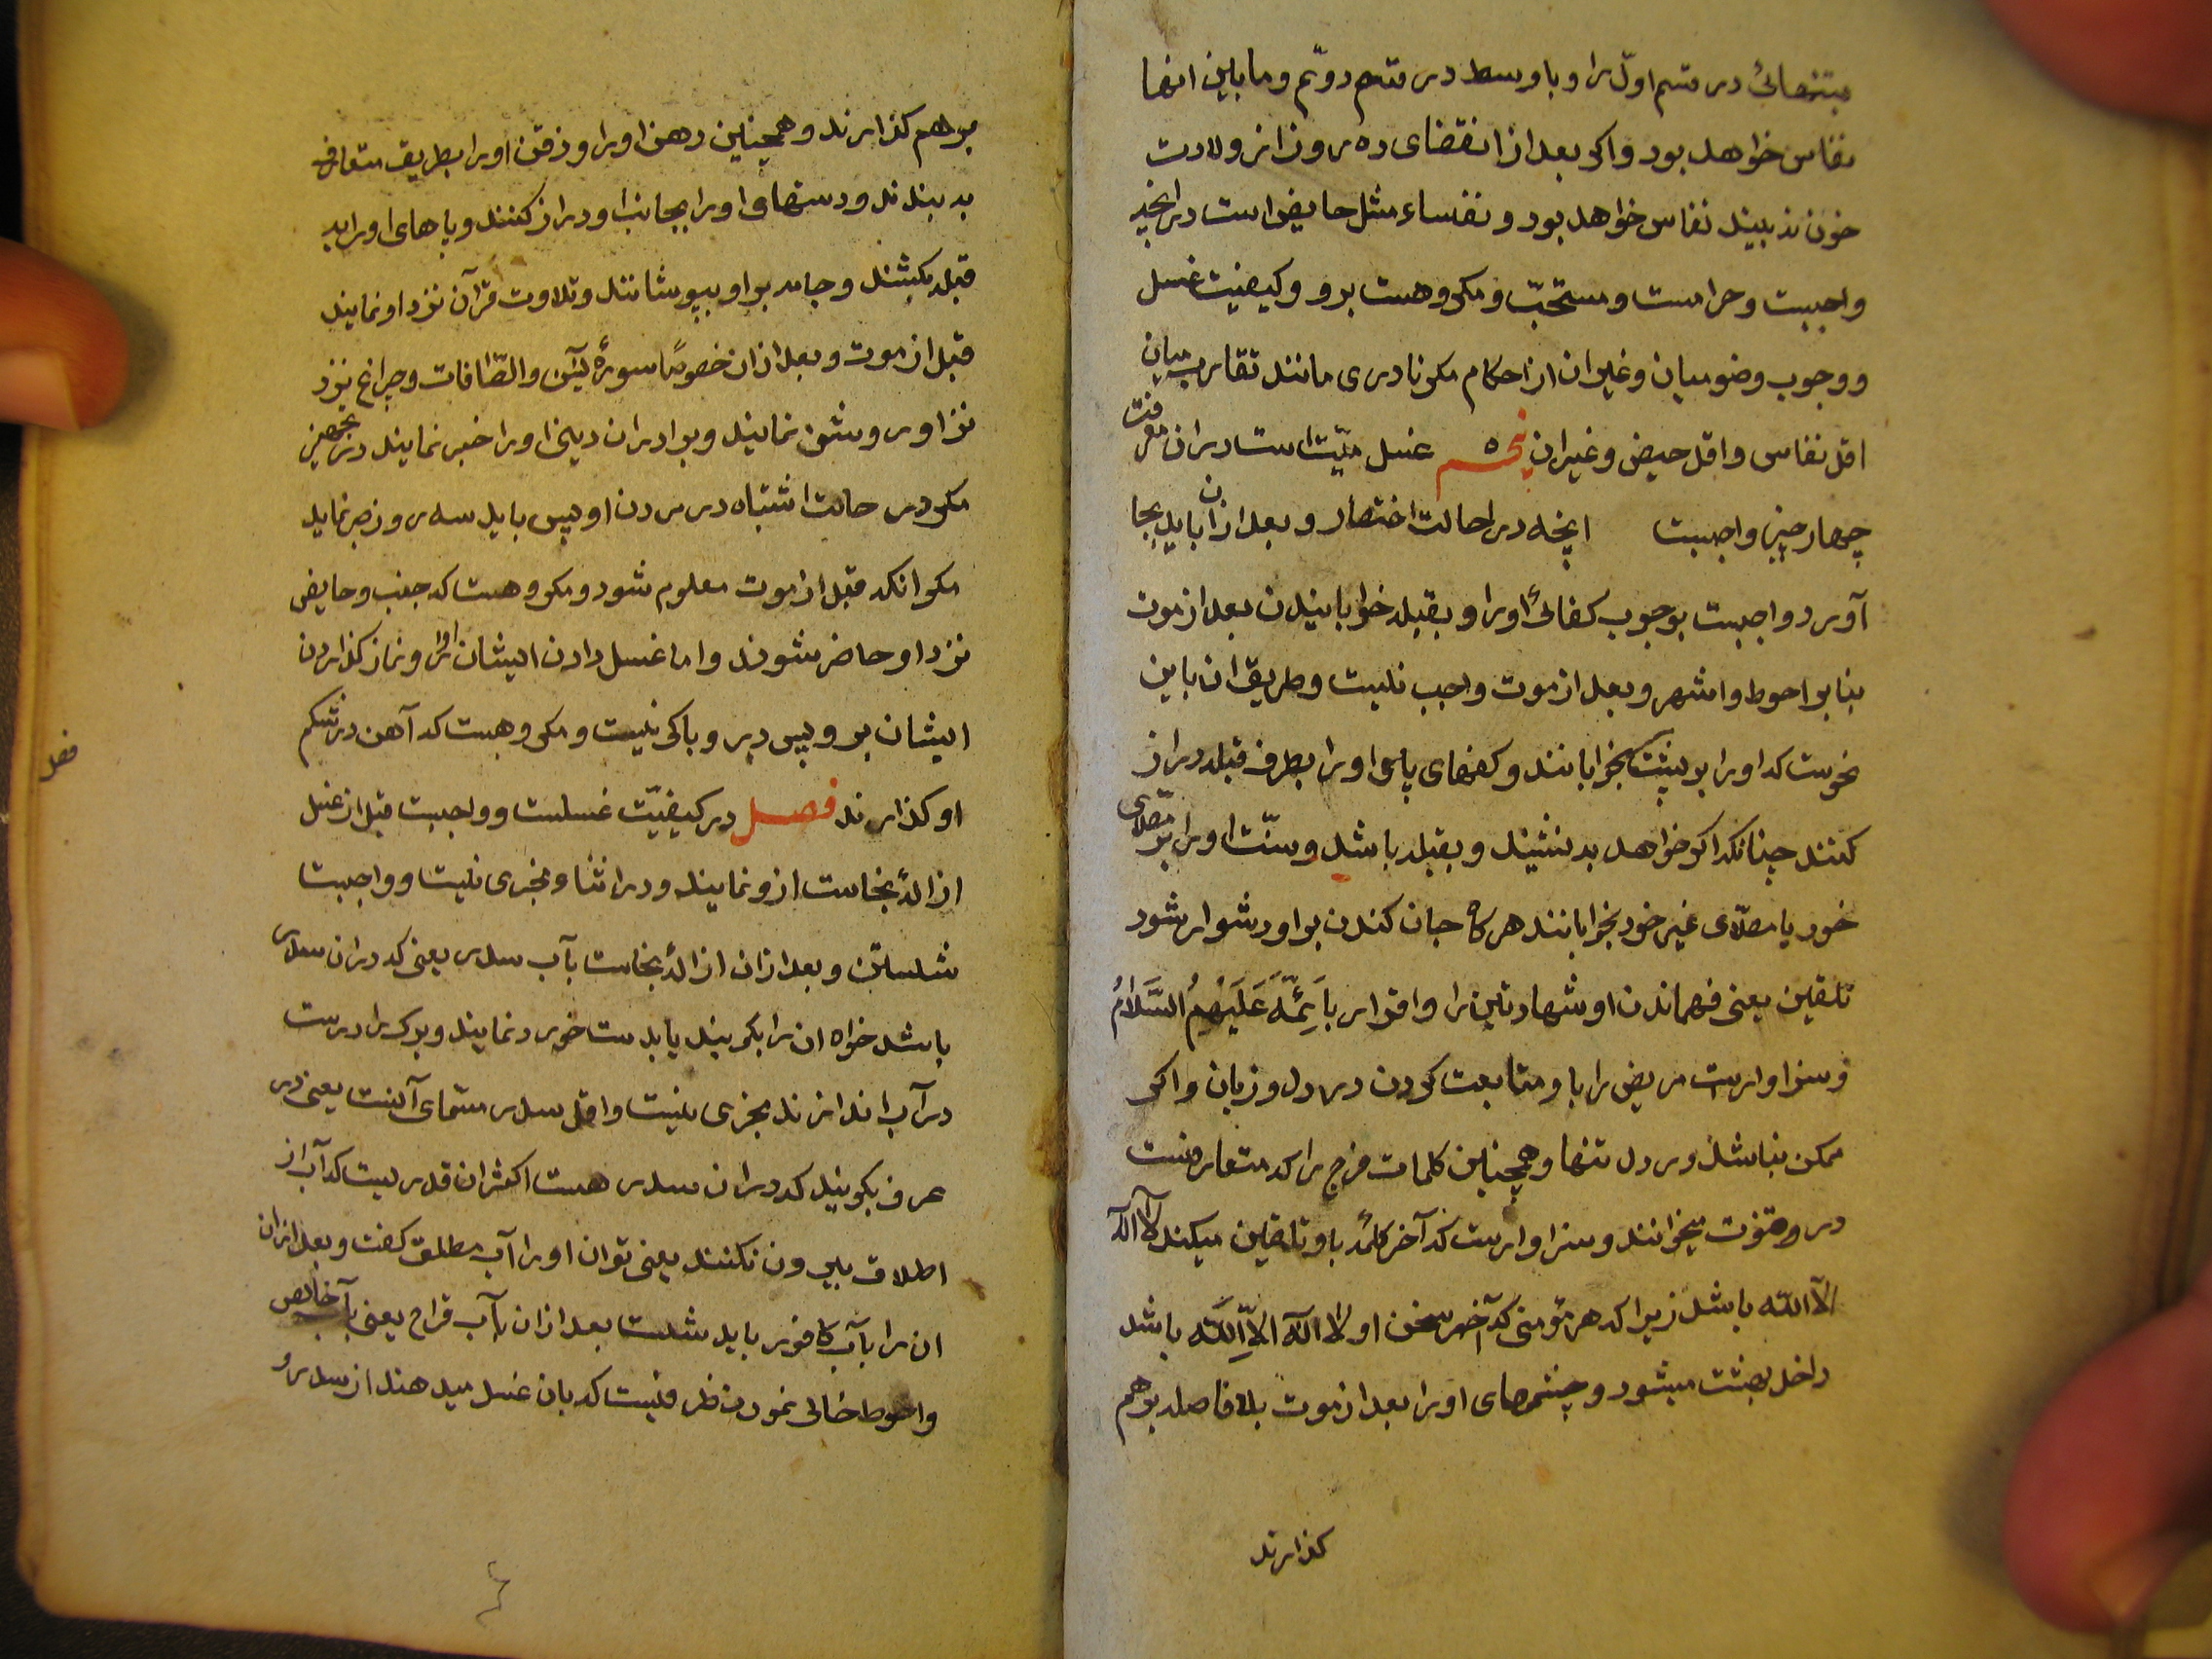 بتنهائی در قسم اوّل را و با وسط در قسم دوّم و مابین انها
نفاس خواهد بود و اکر بعد از انقضای ده روز از ولادت
خون نه بیند نفاس خواهد بود و نفساء مثل حایض است در انچه
واجبست و حرامست و مستحبّ و مکروهست برو و کیفیت غسل
و وجوب وضو میان و غیر ان از احکام مکر نادری مانند تقارب میان
اقل نفاس و اقل حیض و غیر ان پنجم غسل میّت است در ان معرفت
چهار چیز واجبست انچه در حالت اختضار و بعد از ان باید بجا
آورد واجبست بوجوب کفائی اورا و بقبله خوابانیدن بعد از موت
بنا بر احوط و اشهر و بعد از موت واجب نیست و طریق ان باین
نحوست که اورا بر پشت بخوابانند و کفهای پای اورا بطرف قبله دراز
کنند چنانکه اکر خواهد بدنشیند و بقبله باشد و سنّت اورا بر مصلای
خود یا مصلّای غیر خود بخوابانند هر کاه جان کندن بر او دشوار شود
تلقین یعنی فهماندن او شهادتین را و اقرار بائمّه علیهم السّلام
و سزاوارست مریض را با و متابعت کردن در دل و زبان و اکر
ممکن نباشد در دل تنها و همچنین کلمات فرج را که متعارفست
در وقنوت میخوانند و سزاوارست که آخر کلمه باو تلقین میکند لا اله
الا اللّه باشد زیرا که هر مؤمنی که آخر سخن او لا اله الا اللّه باشد
داخل بهشت میشود و چشمهای اورا بعد از موت بلا فاصله برهم
کذارند
برهم کذارند و همچنین دهن اورا و ذقن اورا بطریق متعارف
به بندند و دستهای اورا بجانب او دراز کنند و پاهای اورا به
قبله بکشند و جامه بر او بپوشانند و تلاوت قرآن نزد او نمایند
قبل از موت و بعد از ان خصوصًا سورهٔ یٓس و الصّافات و چراغ نزد
نزد او روشن نمایند و برادران دینی اورا خبر نمایند در تجهیز
مکر در حالت اشتباه در مردن او پس باید سه روز صبر نماید
مکر انکه قبل از موت معلوم شود و مکروهست که جنب و حایض
نزد او حاضر شوند و اما غسل دادن ایشان اورا و نماز کذاردن
ایشان بر و پس در و باکی نیست و مکروهست که آهن در شکم
او کذارند فصل در کیفیّت غسلست و واجبست قبل از غسل
فصل
ازالهٔ نجاست ازو نمایند و در اثنا و مجزی نیست و واجبست
شستن و بعد از ان ازالهٔ نجاست بآب سدر یعنی که در ان سدری
باشد خواه ان را بکوبند یا بدست خورد نمایند و برک را درست
در آب اندازند مجزی نیست و اقل سدر مسمای آنست یعنی در
عرف بکویند که در ان سدر هست اکثر ان قدریست که آب از
اطلاق بیرون نکنند یعنی توان او را آب مطلق کفت و بعد از ان
ان را بآب کافور باید شست بعد از ان بآب قراح یعنی بآب خالص
و احوط خالی نمودن ظرفیست که بان غسل میدهند از سدر و